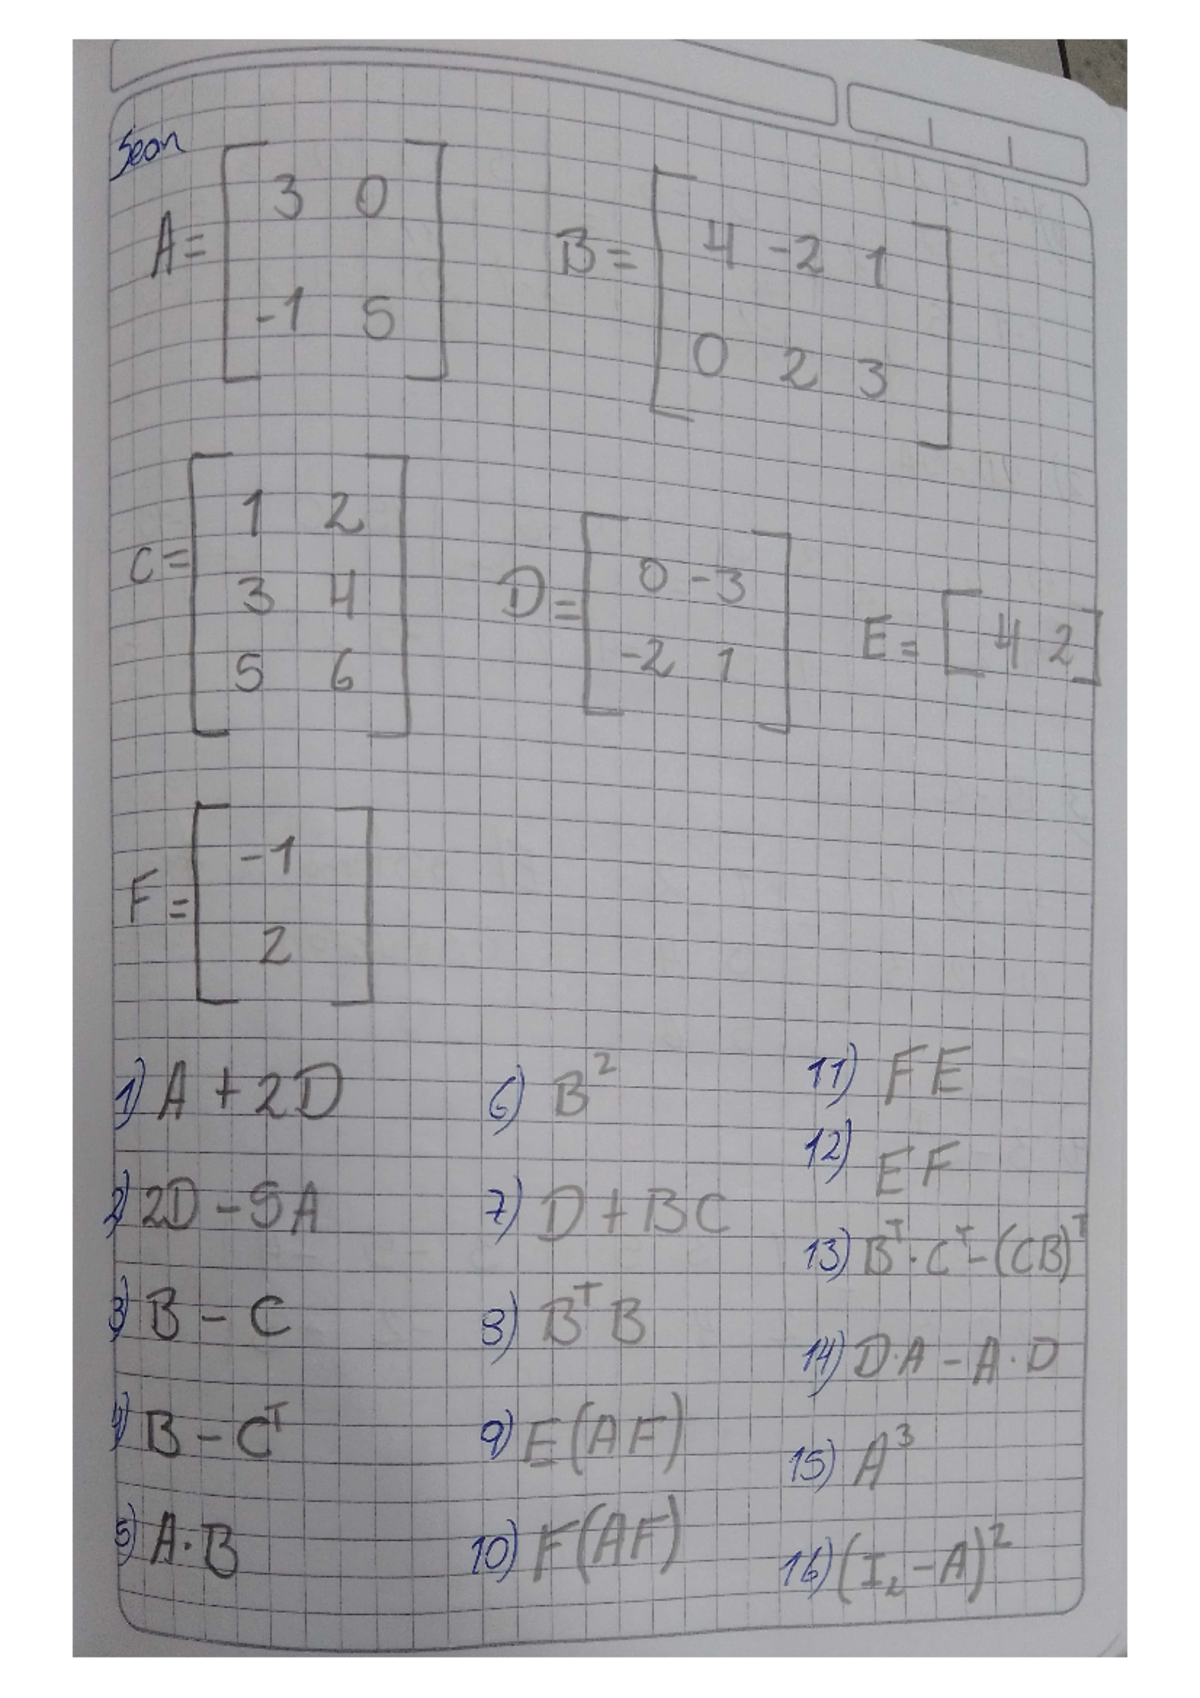 Sean
A = [ 3 0
-1 5 ]
B = [ 4 -2 1
0 2 3 ]
C = [ 1 2
3 4
5 6 ]
D = [ 0 -3
-2 1 ]
E = [ 4 2 ]
F = [ -1
2 ]
1) A + 2D
2) 2D - 5A
3) B - C
4) B - Cᵀ
5) A·B
6) B²
7) D + BC
8) BᵀB
9) E(AF)
10) F(AF)
11) FE
12) EF
13) Bᵀ·Cᵀ-(CB)ᵀ
14) D·A - A·D
15) A³
16) (I₂ - A)²